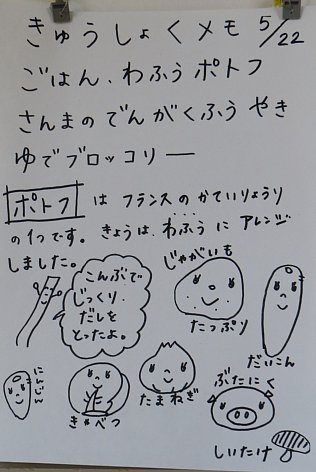 きゅうしょくメモ 5/22
ごはん、わふうポトフ
さんまのでんがくふうやき
ゆでブロッコリー
ポトフ は フランスの かていりょうり
の1つです。きょうは、わふうに アレンジ
しました。
こんぶで
じっくり、
だしを
とったよ。
じゃがいも
たっぷり
だいこん
にんじん
きゃべつ
たまねぎ
ぶたにく
しいたけ